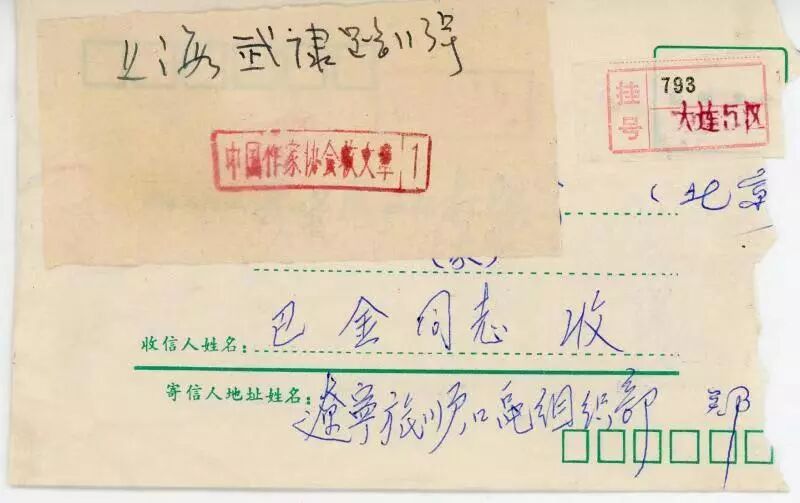 上海武康路113号
中国作家协会收文章 1
挂号
793
大连5区
(北京
收信人姓名: 巴金同志 收
寄信人地址姓名: 辽宁旅顺口区组织部 郑